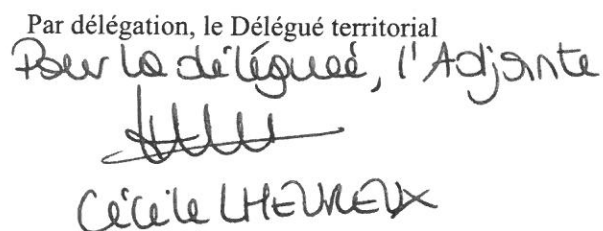 Par délégation, le Délégué territorial
Pour la déléguée, l'Adjointe
Cécile LHEUREUX